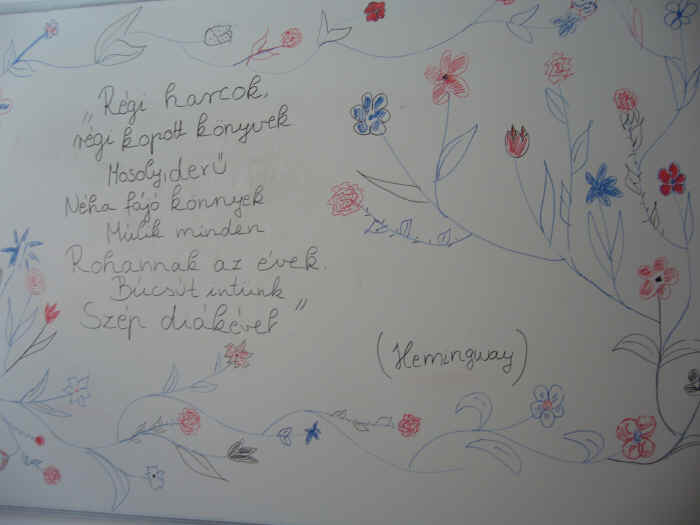 „Régi harcok,
régi kopott könyvek
Mosoly, derű
Néha fájó könnyek
Múlik minden
Rohannak az évek.
Búcsút intünk
Szép diákévek"
(Hemingway)